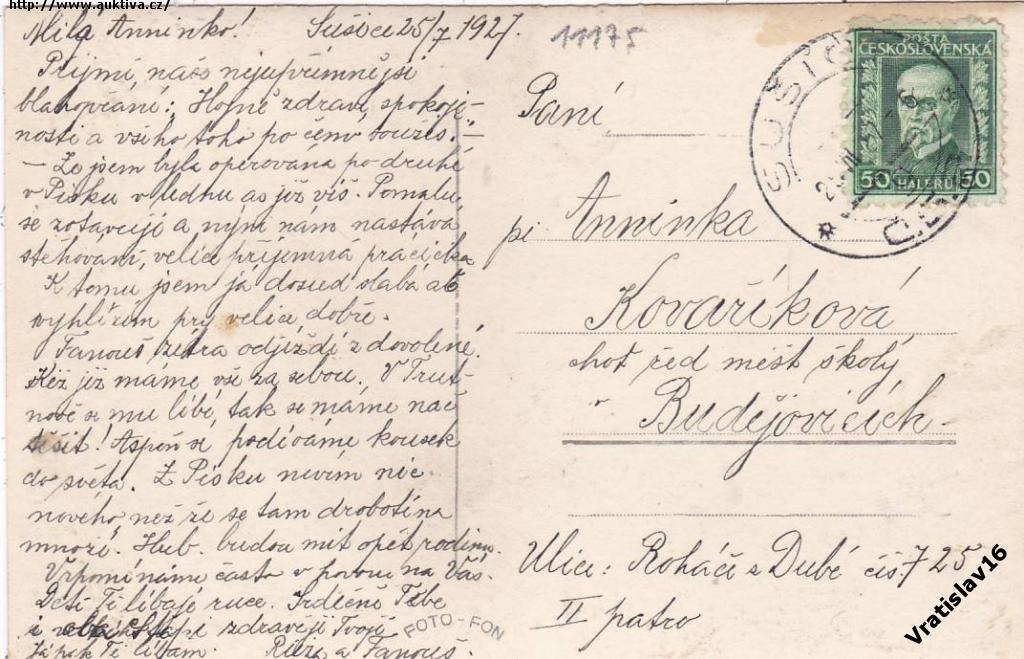 http://www.auktiva.cz/
Milá Anninko! Sušice 25/7 1927.
11175
Přijmi naše nejupřímnější
blahopřání: Hojně zdraví, spokoje-
nosti a všeho toho po čem toužíš. -
- Že jsem byla operována po druhé
v Písku v lednu as již víš. Pomalu
se zotavuji a nyní nám nastává
stěhování, velice příjemná
K tomu jsem já dosud slabá ač
vyhlížím prý velice dobře.
Fanouš zítra odjíždí z dovolené.
Kéž již máme vše za sebou. V Trut-
nově se mu líbí, tak se máme nač
těšit! Aspoň se podíváme kousek
do světa. Z Písku nevím nic
nového, než že se tam drobotina
množí. Hub. budou mít opět rodinu.
Vzpomínáme často v hovoru na Vás.
Děti Ti líbají ruce. Srdečně Tebe
i zdravějí Tvoji
Ti líbám. Růža a Fanouš.
FOTO-FON
POŠTA
ČESKOSLOVENSKÁ
50 HALÉŘŮ 50
SUŠICE
Paní
pí Anninka
Kovaříková
choť řed měšť školy
v Budějovicích
Ulice: Roháče z Dubé čís. 725
II patro
Vratislav16